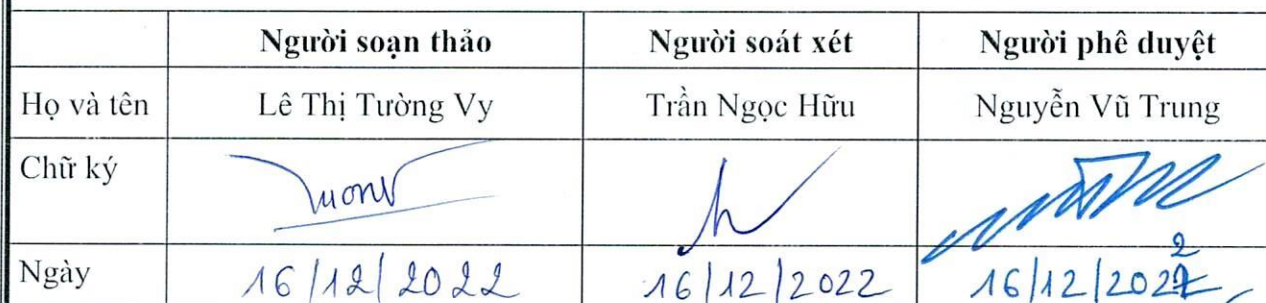 Người soạn thảo Người soát xét Người phê duyệt
Họ và tên Lê Thị Tường Vy Trần Ngọc Hữu Nguyễn Vũ Trung
Chữ ký
Ngày 16/12/2022 16/12/2022 16/12/2022